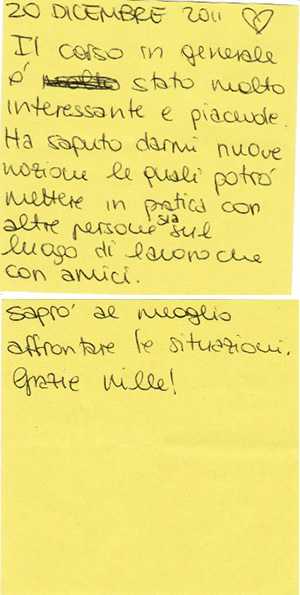 20 DICEMBRE 2011 ♡
Il corso in generale
é stato molto
interessante e piacevole.
Ha saputo darmi nuove
nozione le quali potró
mettere in pratica con
altre persone sia sul
luogo di lavoro che
con amici.
sapró al meglio
affrontare le situazioni.
Grazie mille!